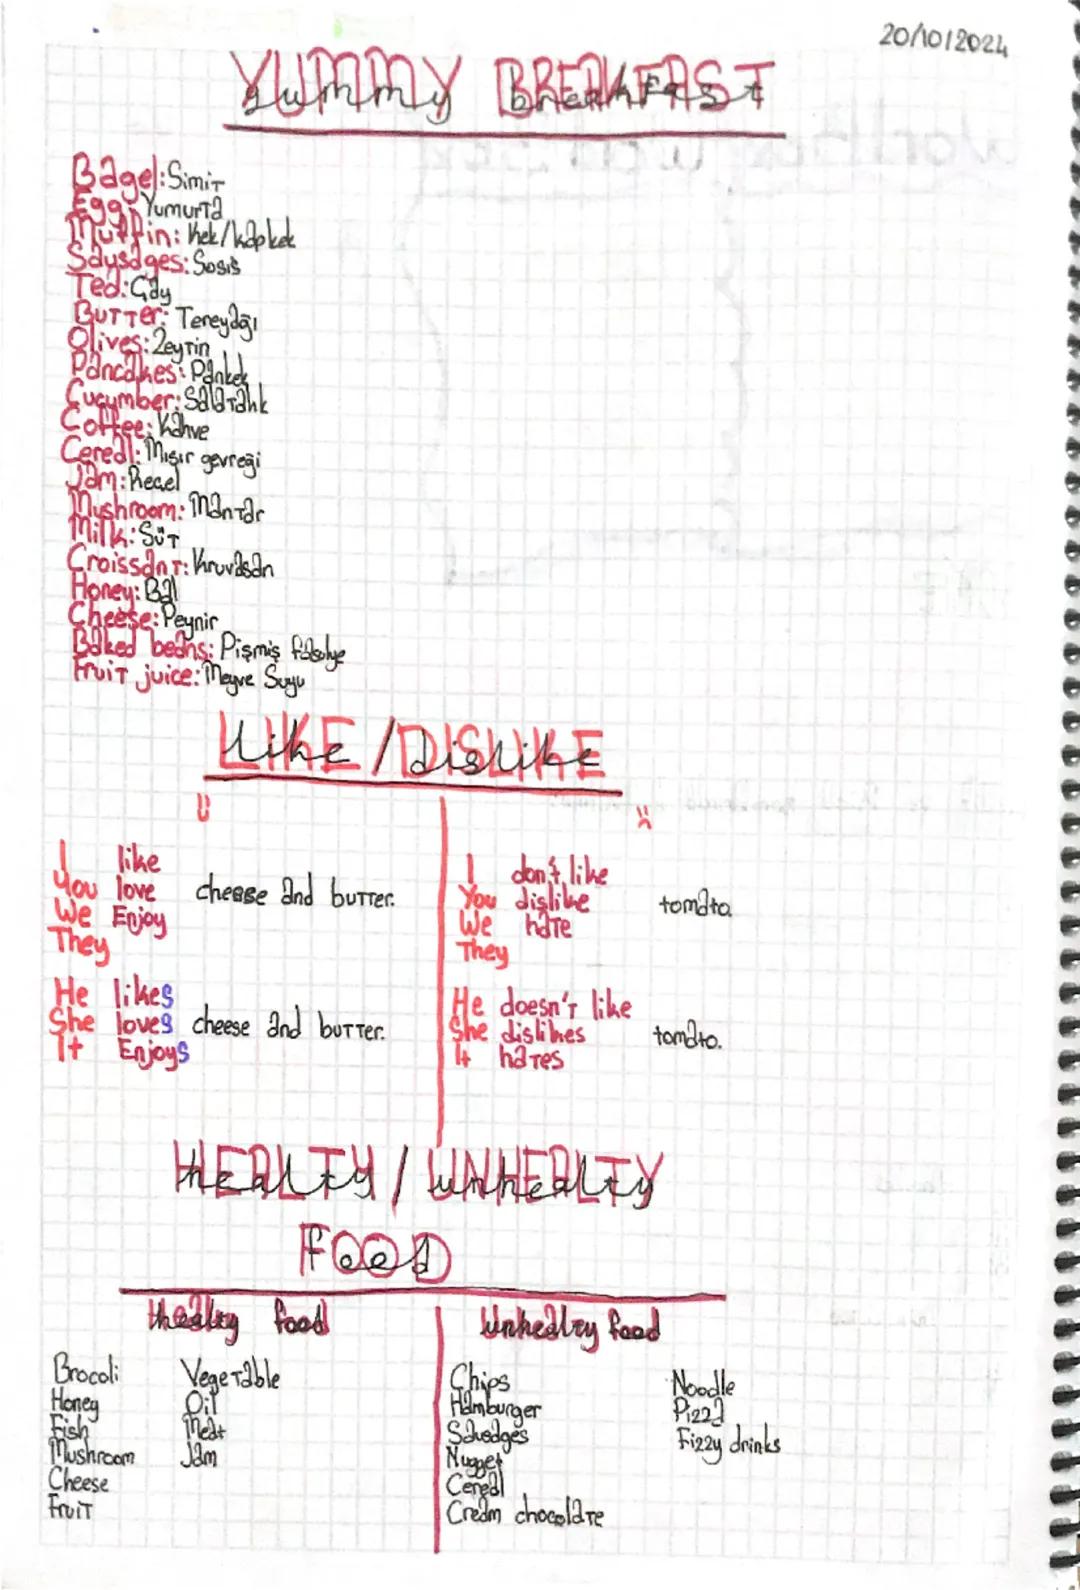 20/10/2024
YUMMY BREAKFAST
Bagel: Simit
Egg: Yumurta
Muffin: Kek/kapkek
Sausages: Sosis
Tea: Çay
Butter: Tereyağı
Olives: Zeytin
Pancakes: Pankek
Cucumber: Salatalık
Coffee: Kahve
Cereal: Mısır gevreği
Jam: Reçel
Mushroom: Mantar
Milk: Süt
Croissant: Kruvasan
Honey: Bal
Cheese: Peynir
Baked beans: Pişmiş fasulye
Fruit juice: Meyve Suyu
LIKE/DISLIKE
I like
You love cheese and butter.
We Enjoy
They
He likes
She loves cheese and butter.
It Enjoys
I don't like
You dislike tomato.
We hate
They
He doesn't like
She dislikes tomato.
It hates
HEALTY / UNHEALTY
FOOD
Healty food
Brocoli Vegetable
Honey Oil
Fish Meat
Mushroom Jam
Cheese
Fruit
Unhealty food
Chips Noodle
Hamburger Pizza
Sauedges Fizzy drinks
Nugget
Cereal
Cream chocolate